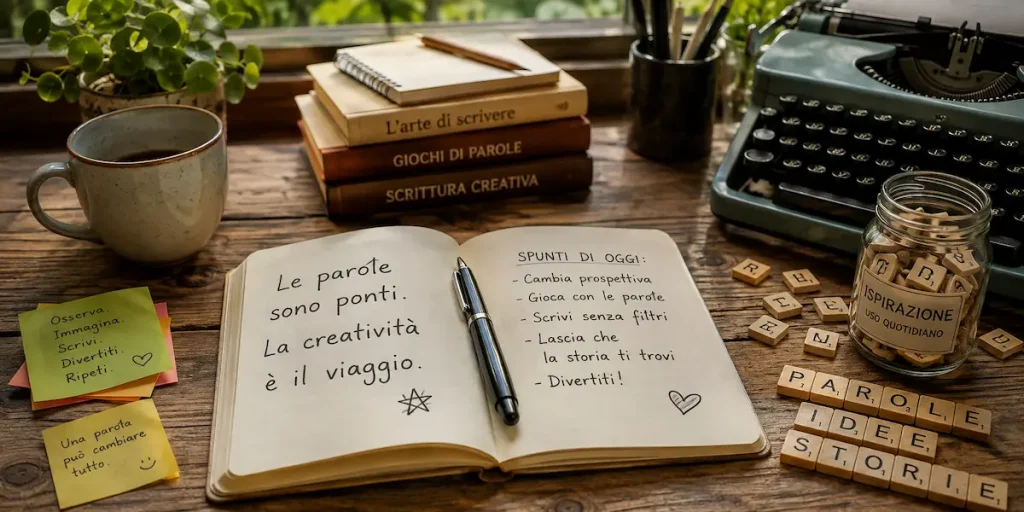 L'arte di scrivere
GIOCHI DI PAROLE
SCRITTURA CREATIVA
Le parole
sono ponti.
La creatività
è il viaggio.
SPUNTI DI OGGI:
- Cambia prospettiva
- Gioca con le parole
- Scrivi senza filtri
- Lascia che
la storia ti trovi
- Divertiti!
Osserva.
Immagina.
Scrivi.
Divertiti.
Ripeti.
Una parola
può cambiare
tutto.
ISPIRAZIONE
USO QUOTIDIANO
PAROLE
IDEE
STORIE